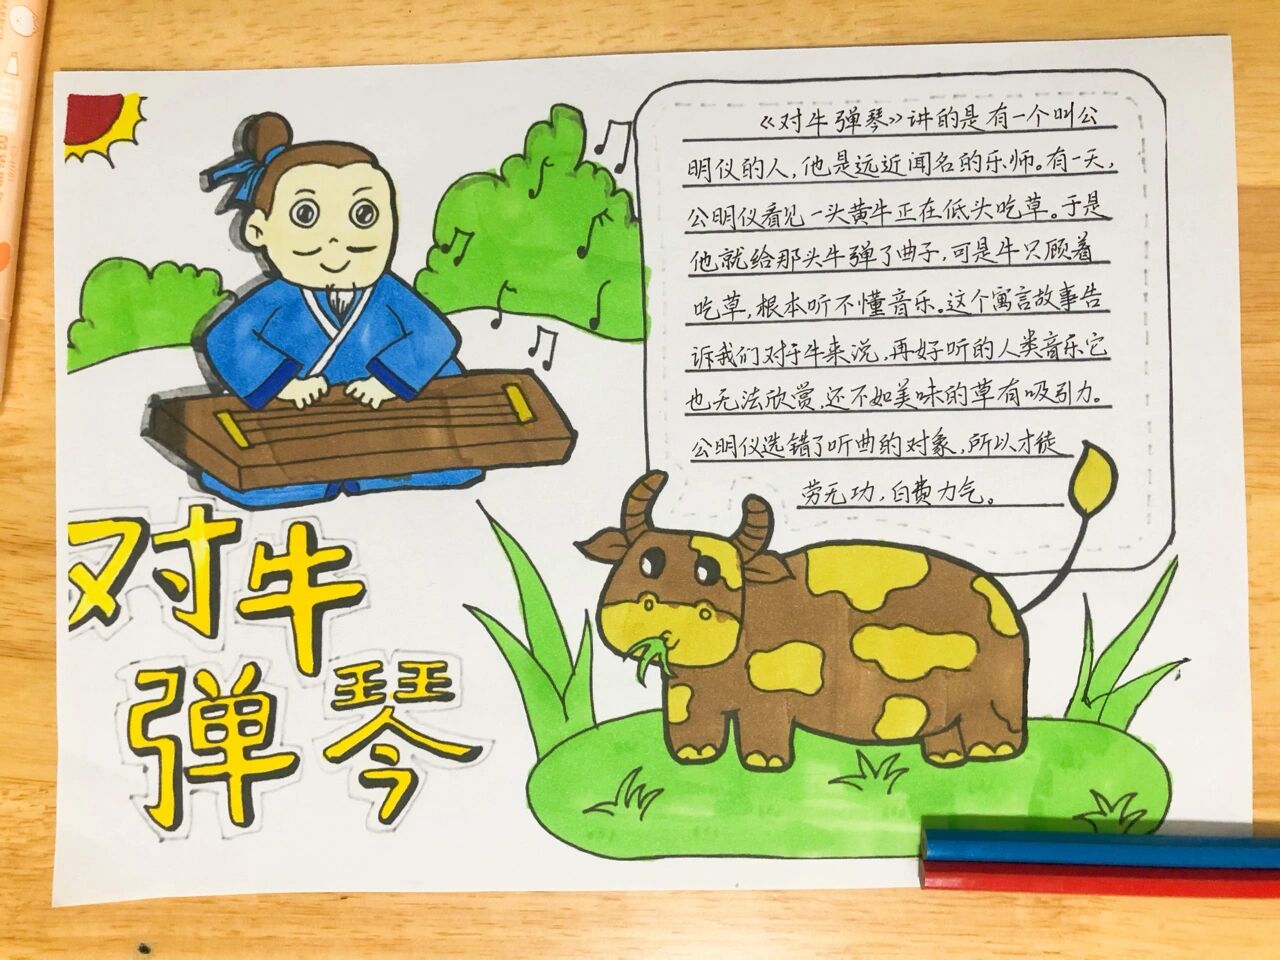 《对牛弹琴》讲的是有一个叫公
明仪的人，他是远近闻名的乐师。有一天，
公明仪看见一头黄牛正在低头吃草。于是
他就给那头牛弹了曲子，可是牛只顾着
吃草，根本听不懂音乐。这个寓言故事告
诉我们对于牛来说，再好听的人类音乐它
也无法欣赏，还不如美味的草有吸引力。
公明仪选错了听曲的对象，所以才徒
劳无功，白费力气。
对牛
弹琴